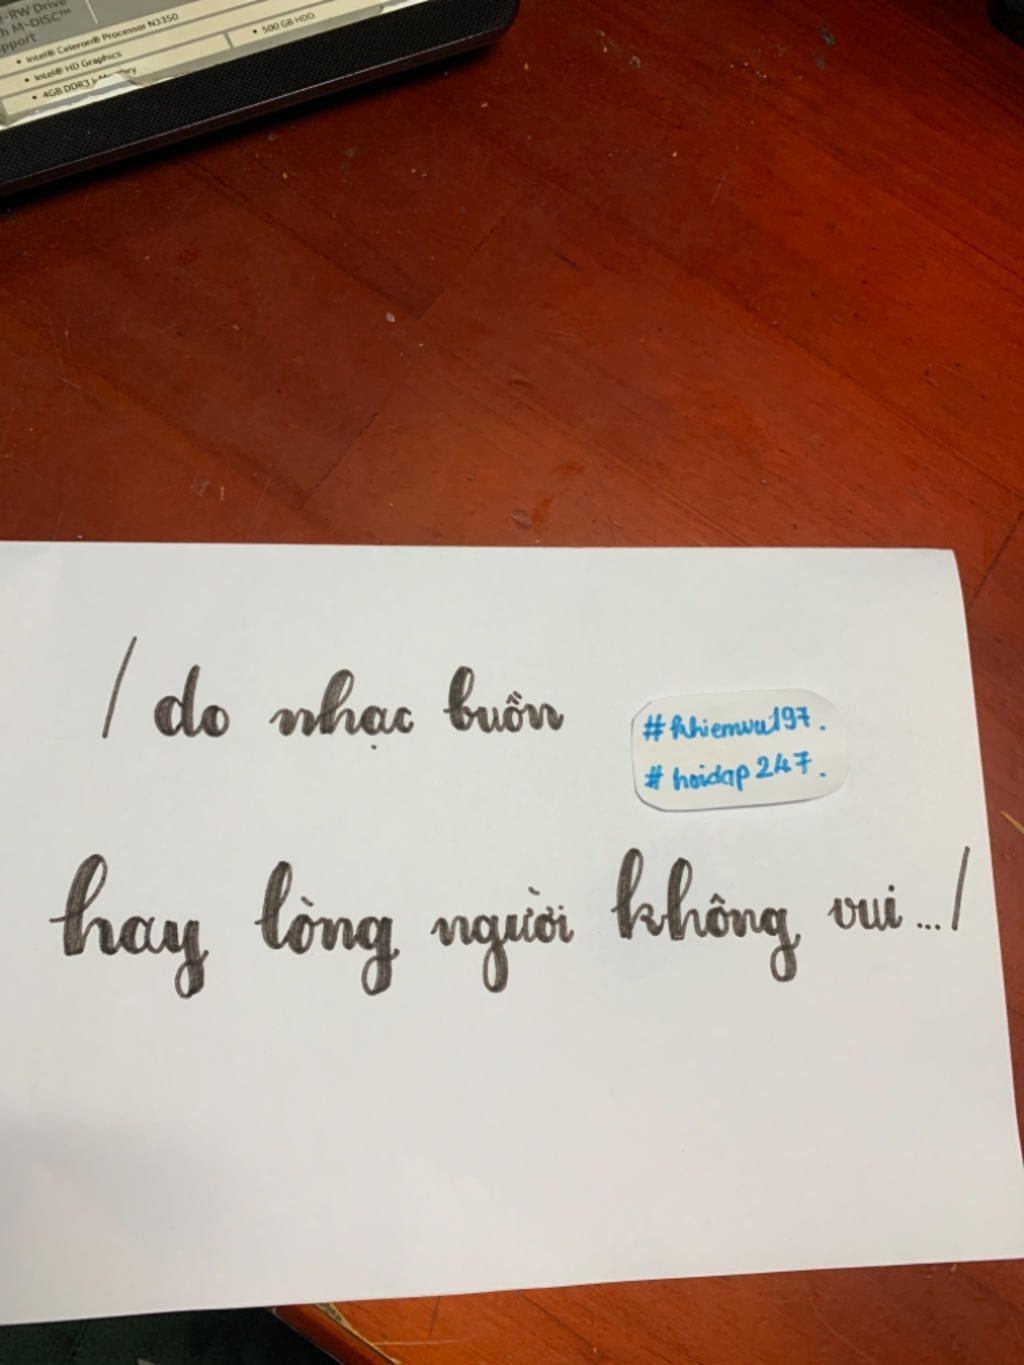 -RW Drive
h M-DISC™
pport
• Intel® Celeron® Processor N3350
• 500 GB HDD
• Intel® HD Graphics
• 4GB DDR3
/ do nhạc buồn
#nhiemvu197.
#hoidap247.
hay lòng người không vui.../